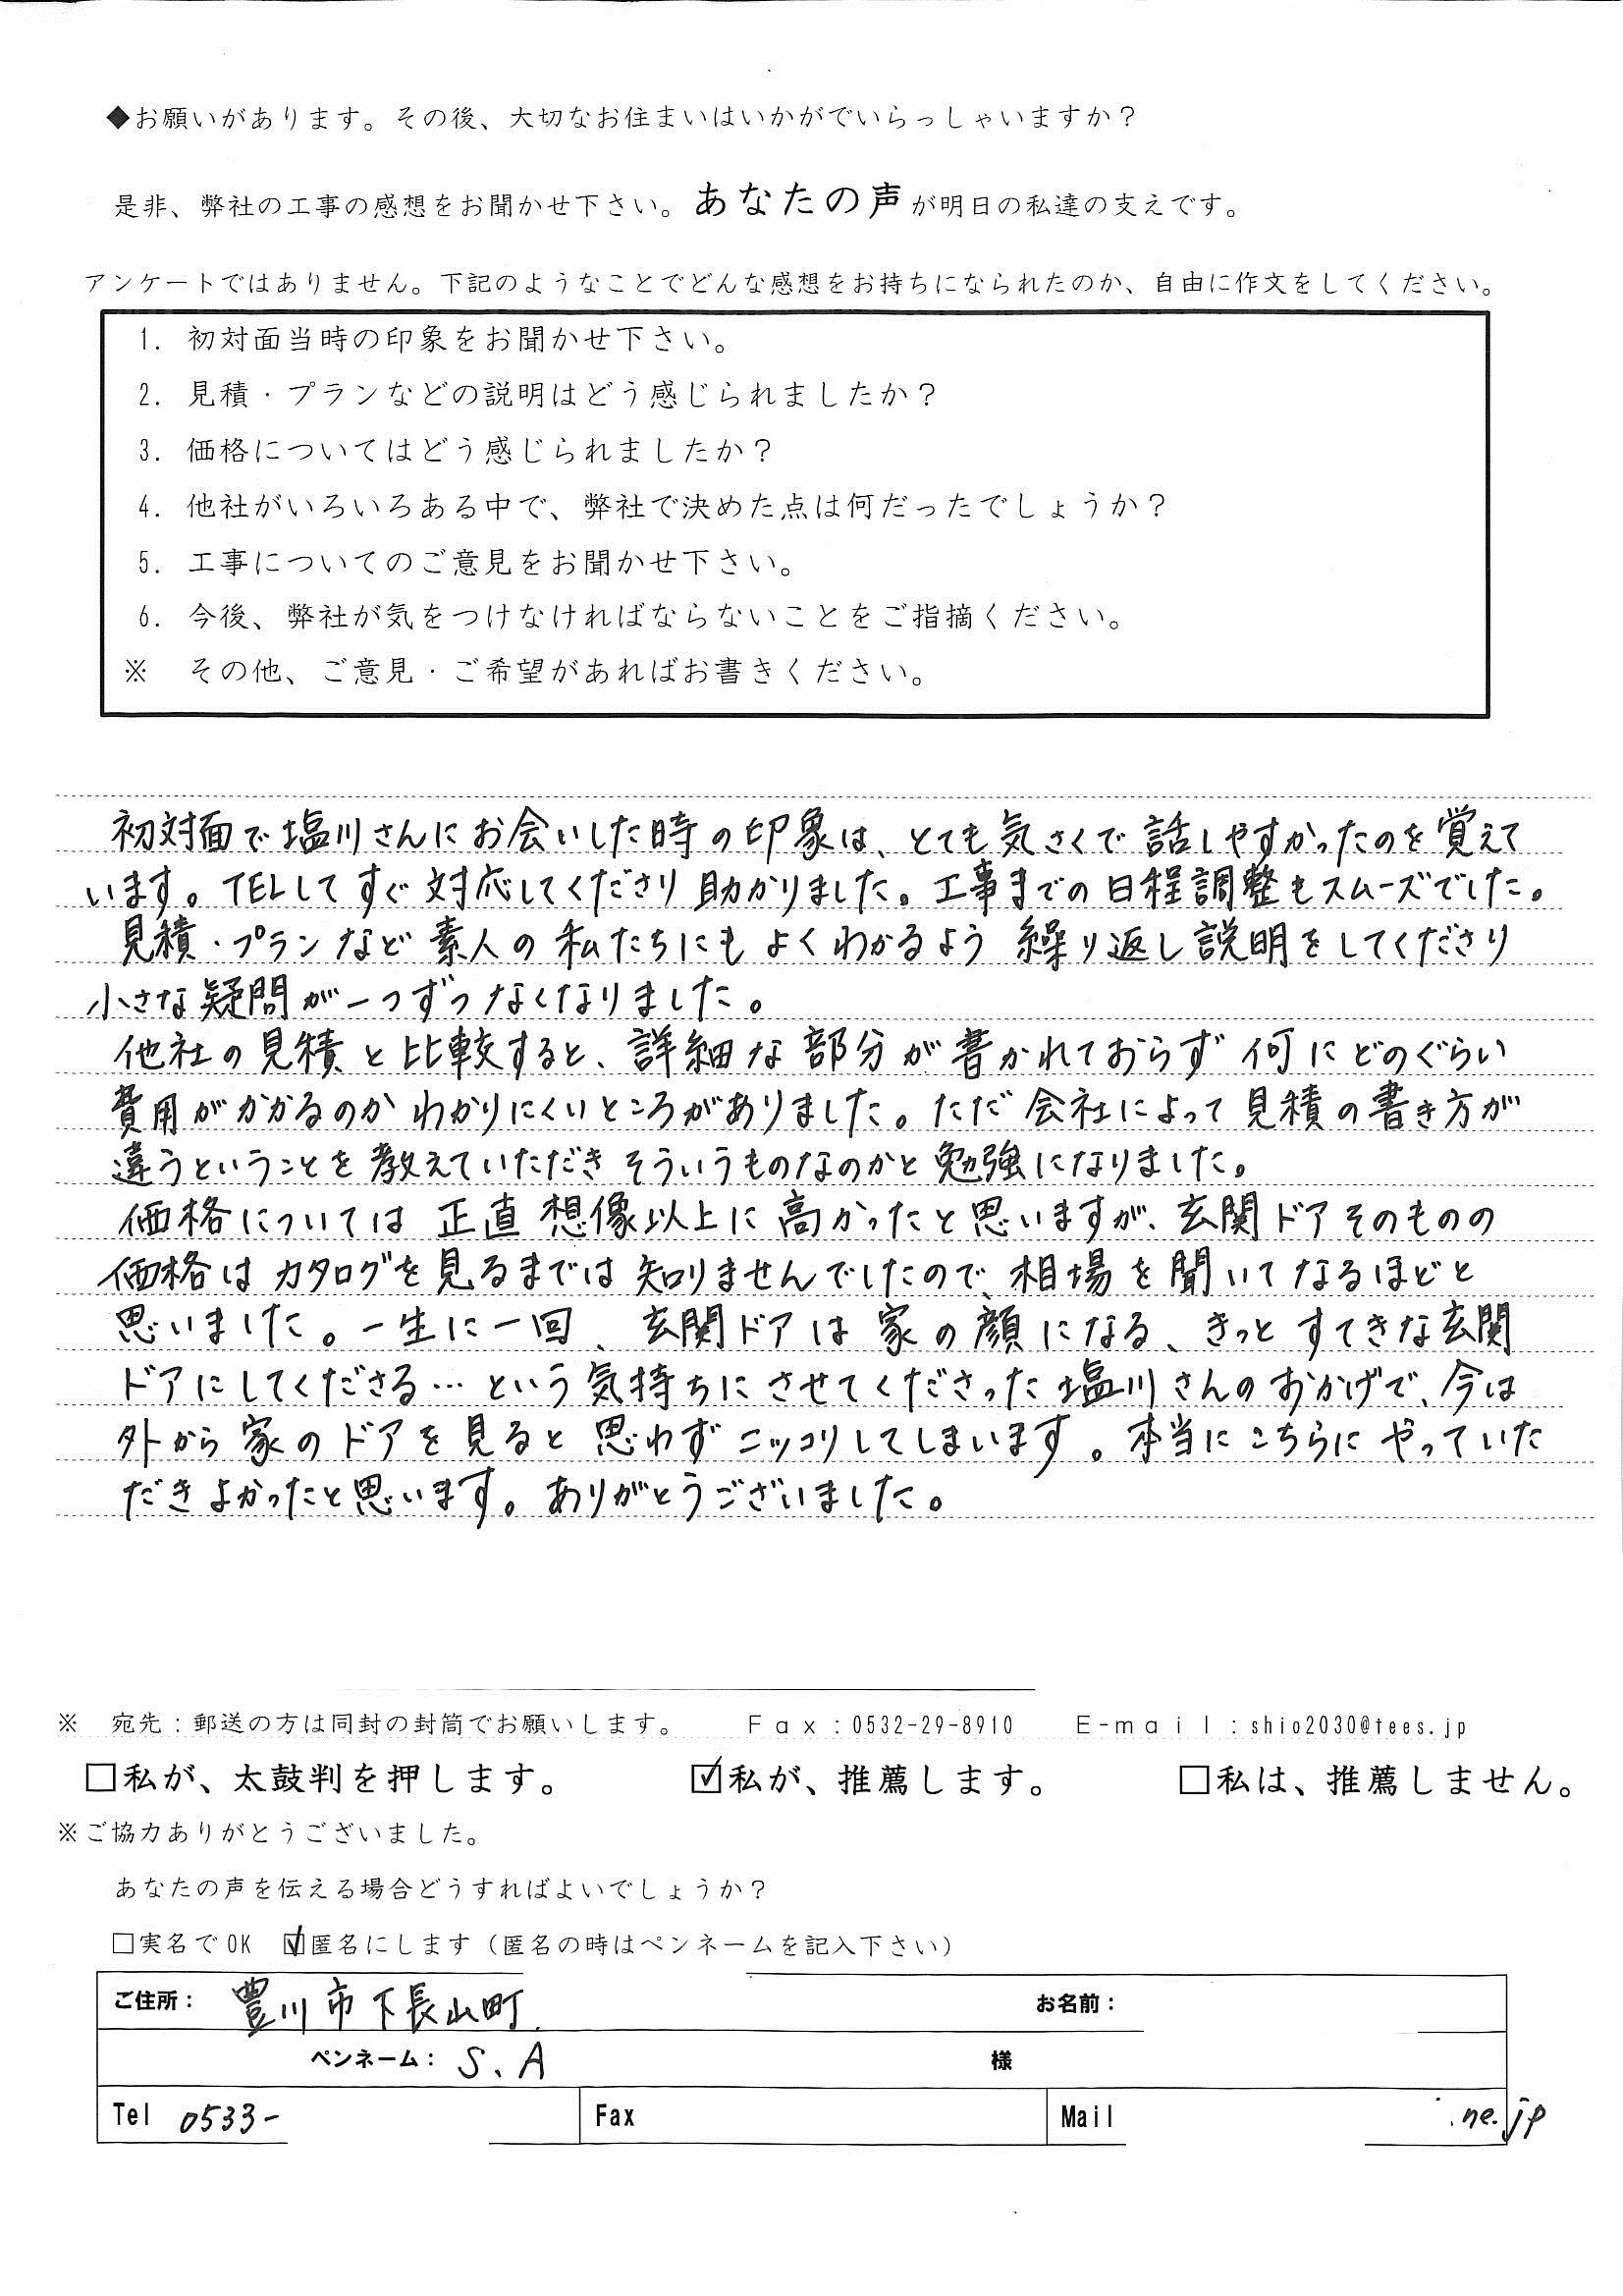 ◆お願いがあります。その後、大切なお住まいはいかがでいらっしゃいますか？
是非、弊社の工事の感想をお聞かせ下さい。あなたの声が明日の私達の支えです。
アンケートではありません。下記のようなことでどんな感想をお持ちになられたのか、自由に作文をしてください。
1. 初対面当時の印象をお聞かせ下さい。
2. 見積・プランなどの説明はどう感じられましたか？
3. 価格についてはどう感じられましたか？
4. 他社がいろいろある中で、弊社で決めた点は何だったでしょうか？
5. 工事についてのご意見をお聞かせ下さい。
6. 今後、弊社が気をつけなければならないことをご指摘ください。
※ その他、ご意見・ご希望があればお書きください。
初対面で塩川さんにお会いした時の印象は、とても気さくで話しやすかったのを覚えて
います。TELしてすぐ対応してくださり助かりました。工事までの日程調整もスムーズでした。
見積・プランなど素人の私たちにもよくわかるよう繰り返し説明をしてくださり
小さな疑問が一つずつなくなりました。
他社の見積と比較すると、詳細な部分が書かれておらず何にどのぐらい
費用がかかるのかわかりにくいところがありました。ただ会社によって見積の書き方が
違うということを教えていただきそういうものなのかと勉強になりました。
価格については正直想像以上に高かったと思いますが、玄関ドアそのものの
価格はカタログを見るまでは知りませんでしたので、相場を聞いてなるほどと
思いました。一生に一回、玄関ドアは家の顔になる、きっとすてきな玄関
ドアにしてくださる…という気持ちにさせてくださった塩川さんのおかげで、今は
外から家のドアを見ると思わずニッコリしてしまいます。本当にこちらにやっていた
だきよかったと思います。ありがとうございました。
※ 宛先：郵送の方は同封の封筒でお願いします。 Fax：0532-29-8910 E-mail：shio2030@tees.jp
□私が、太鼓判を押します。 ☑私が、推薦します。 □私は、推薦しません。
※ご協力ありがとうございました。
あなたの声を伝える場合どうすればよいでしょうか？
□実名でOK ☑匿名にします（匿名の時はペンネームを記入下さい）
ご住所： 豊川市下長山町 お名前：
ペンネーム： S.A 様
Tel 0533- Fax Mail .ne.jp